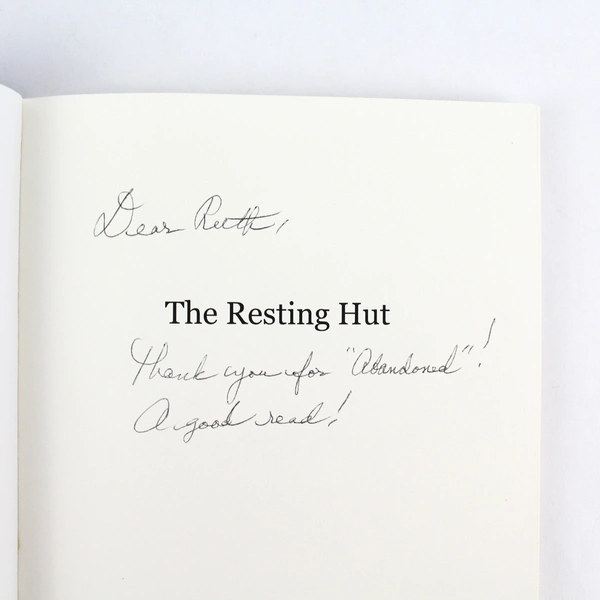 Dear Ruth,
The Resting Hut
Thank you for "Abandoned"!
A good read!